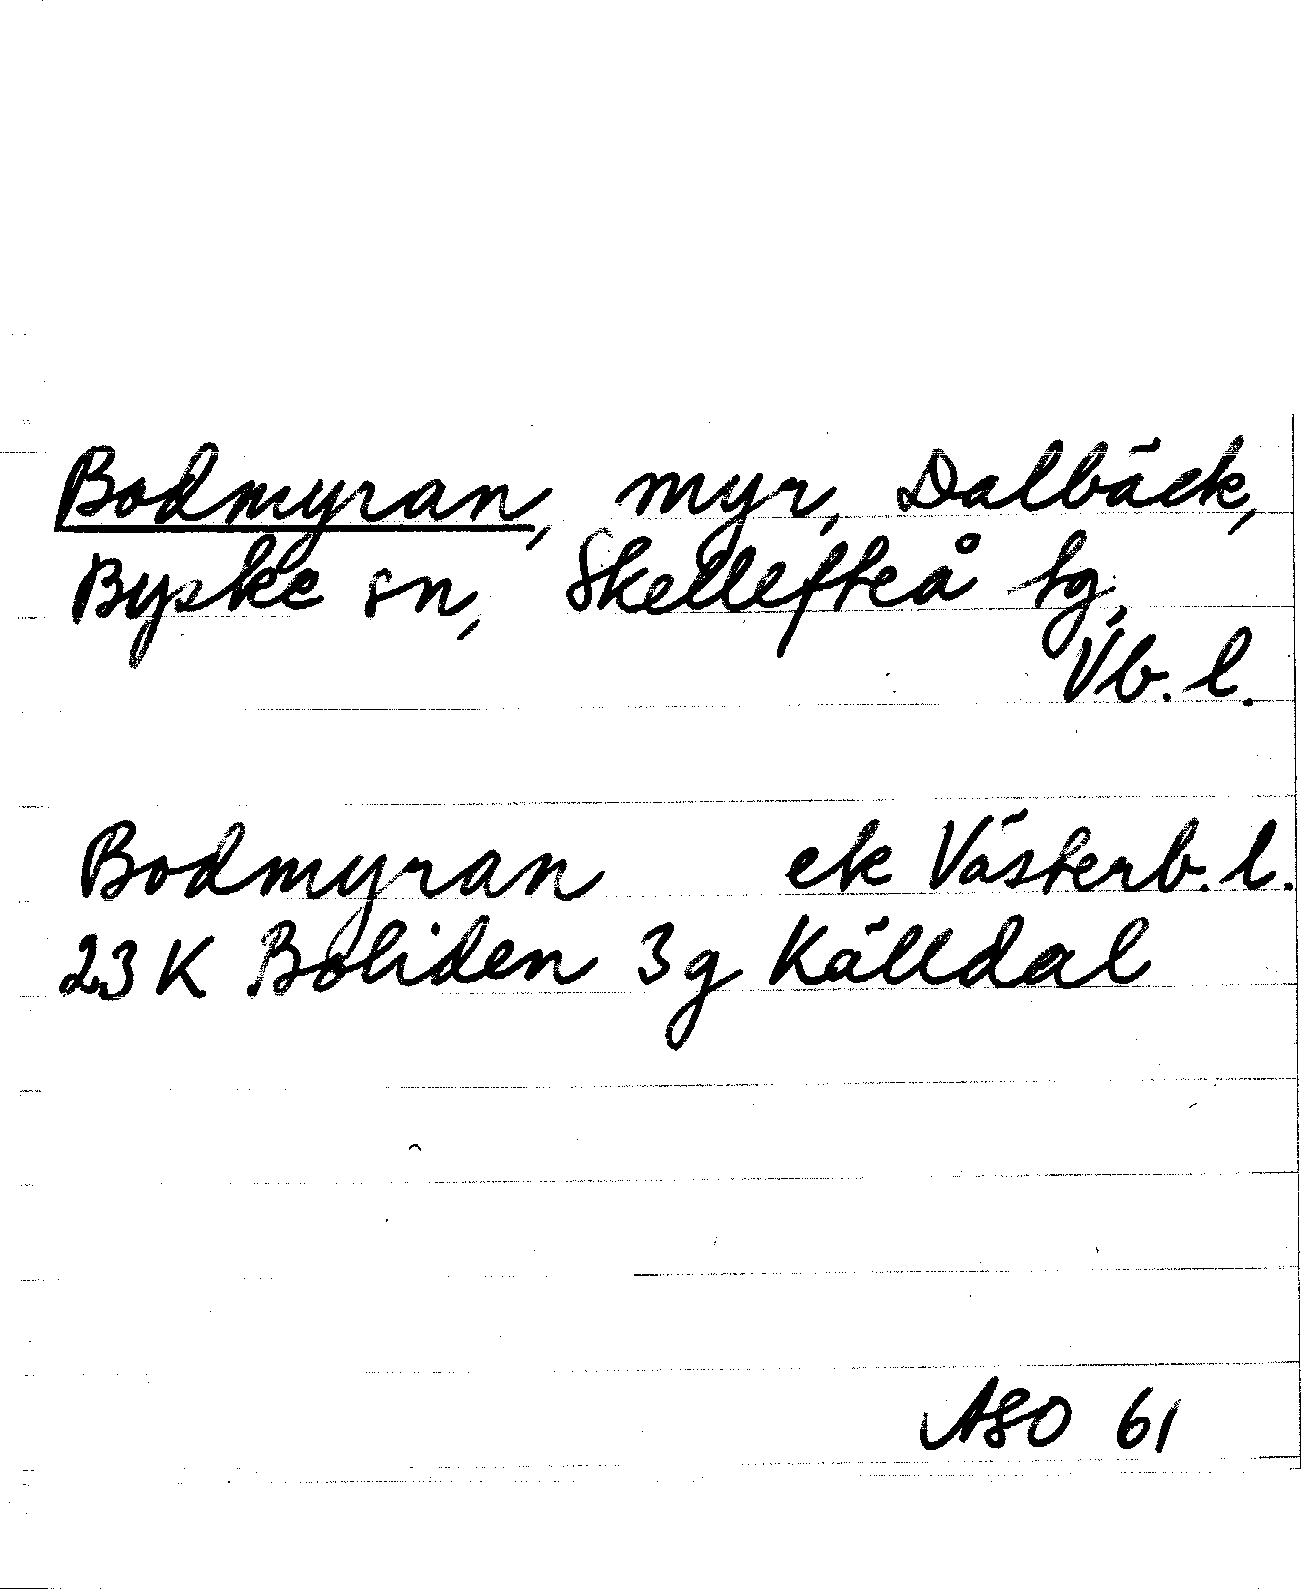 Bodmyran, myr, Dalbäck,
Byske sn, Skellefteå tg,
Vb. l.
Bodmyran ek Västerb. l.
23 K Boliden 3g Källdal
ASO 61